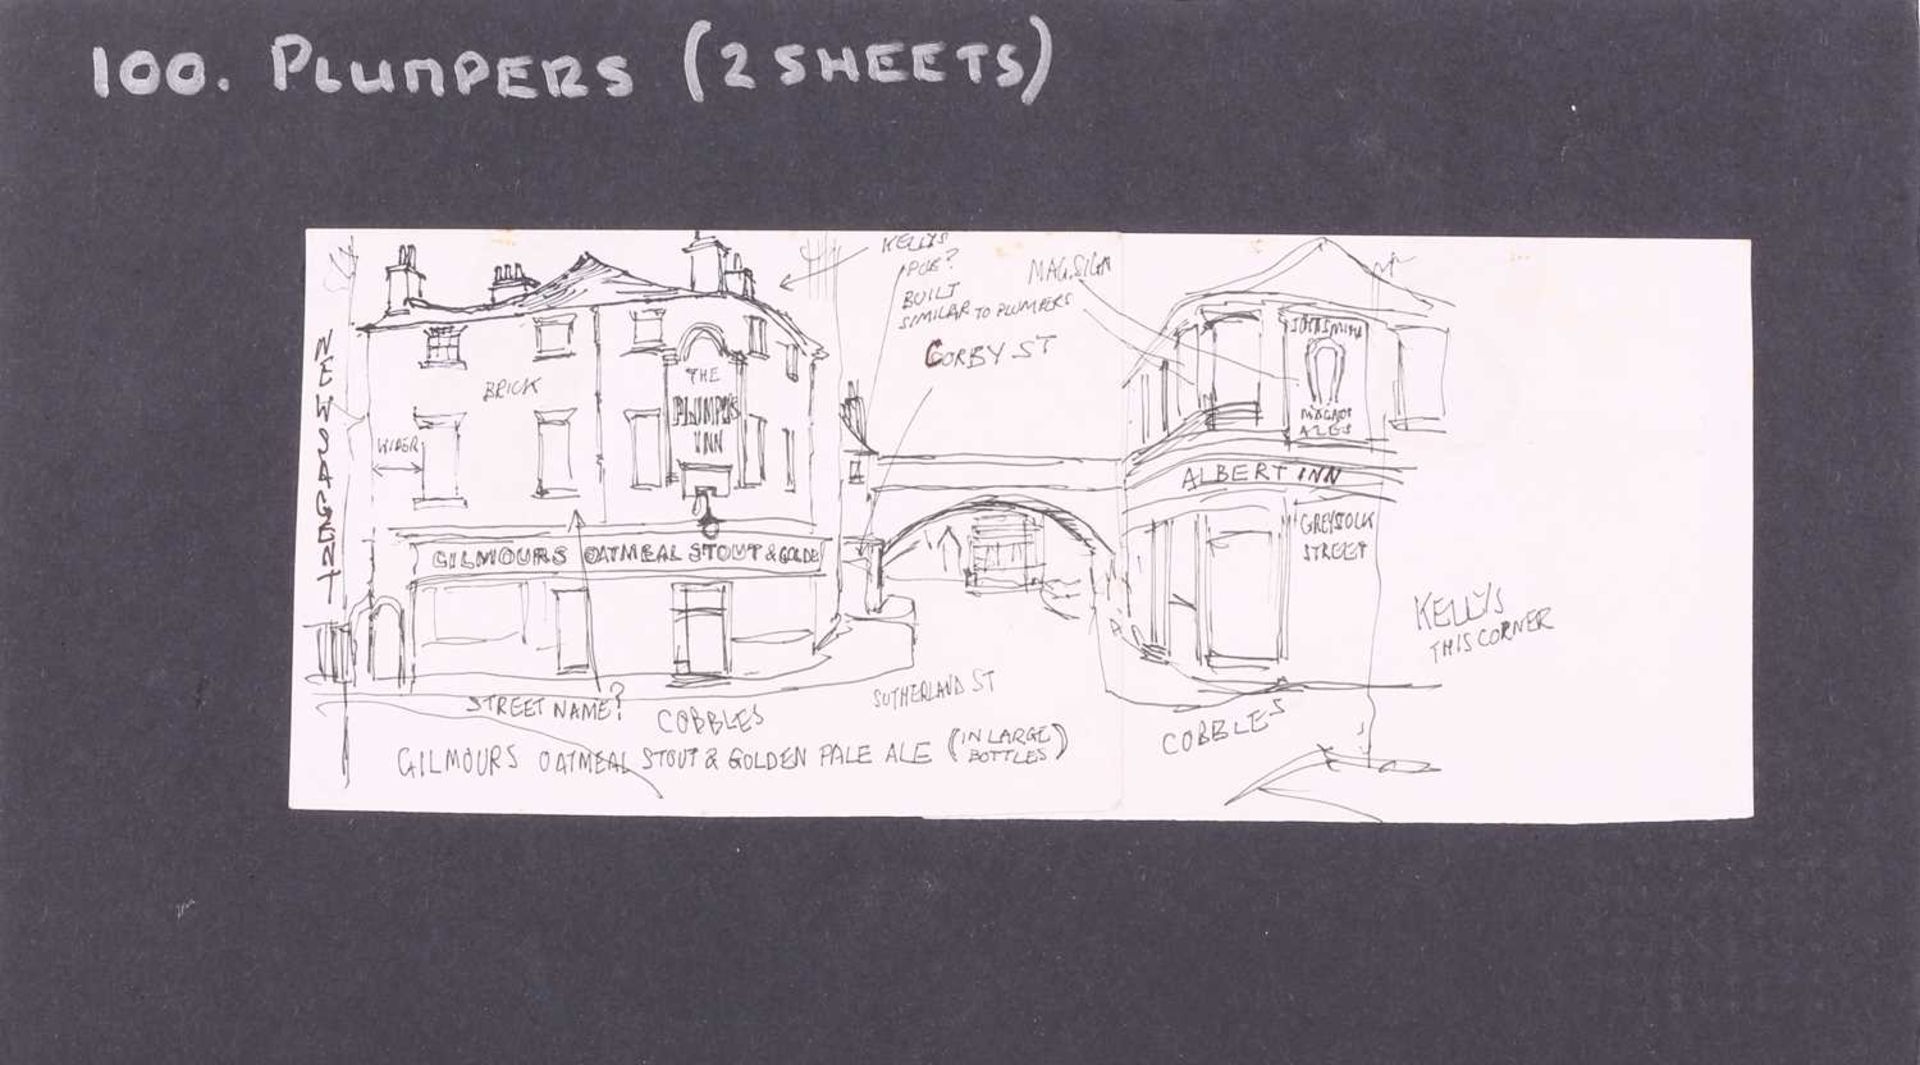 100. PLUMPERS (2 SHEETS)
NEWSAGENT
KELLYS
PUB?
BUILT
SIMILAR TO PLUMPERS
MAG. SIGN
CORBY ST
BRICK
WIDER
THE
PLUMPERS
INN
JOHN SMITH
MAGNET
ALES
ALBERT INN
GILMOURS OATMEAL STOUT & GOLDE
STREET
KELLYS
THIS CORNER
STREET NAME?
COBBLES
SUTHERLAND ST
COBBLES
GILMOURS OATMEAL STOUT & GOLDEN PALE ALE (IN LARGE
BOTTLES)